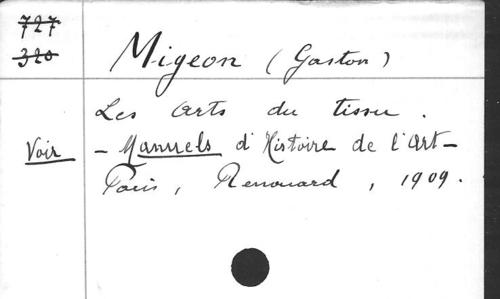 727
320
Migeon (Gaston)
Les Arts du tissu.
Voir
- Manuels d'Histoire de l'Art -
Paris, Renouard, 1909.